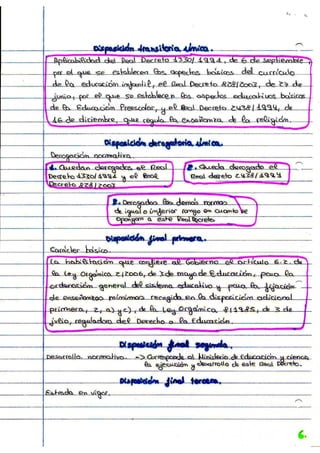 Disposición transitoria única.
Aplicabilidad del Real Decreto 1330/1991, de 6 de septiembre,
por el que se establecen los aspectos básicos del currículo
de la educación infantil, el Real Decreto 828/2003, de 27 de
junio, por el que se establecen los aspectos educativos básicos
de la Educación Preescolar, y el Real Decreto 2438/1994, de
16 de diciembre, que regula la enseñanza de la religión.
Disposición derogatoria única.
Derogación normativa.
1. Quedan derogados el Real
Decreto 1330/1991 y el Real
Decreto 828/2003
2. Queda derogado el
Real decreto 2438/1994
3. Derogadas las demás normas
de igual o inferior rango en cuanto se
opongan a este Real Decreto
Disposición final primera.
Carácter básico.
La habilitación que confiere al Gobierno el artículo 6.2. de
la Ley Orgánica 2/2006, de 3 de mayo de Educación, para la
ordenación general del sistema educativo y para la fijación
de enseñanzas mínimas recogida en la disposición adicional
primera, 2, a) y c), de la Ley Orgánica 8/1985, de 3 de
julio, reguladora del Derecho a la Educación.
Disposición final segunda.
Desarrollo normativo. -> Corresponde al Ministerio de Educación y ciencia
la ejecución y desarrollo de este Real Decreto.
Disposición final tercera.
Entrada en vigor.
6.